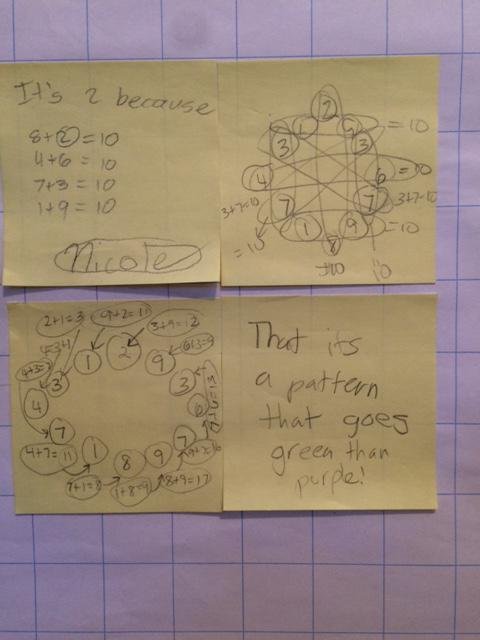 It's 2 because
8+2=10
4+6=10
7+3=10
1+9=10
Nicole
2
1 9 =10
3 3
4 6 =10
3+7=10 7 7 3+7=10
1 9 =10
=10 8
2+1=3 9+2=11 3+9=12
1 2 9
3 3
4 6
7 7
4+7=11 1 8 9
7+1=8 1+8=9 8+9=17
That its
a pattern
that goes
green than
purple!